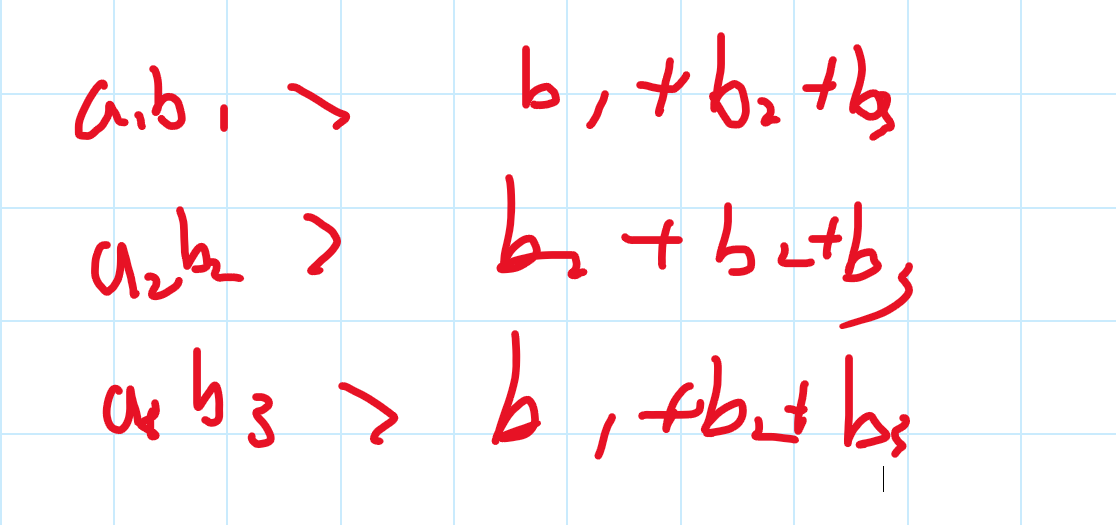 a₁b₁ > b₁ + b₂ + b₃
a₂b₂ > b₂ + b₂ + b₃
b₃ > b₁ + b₂ + b₃